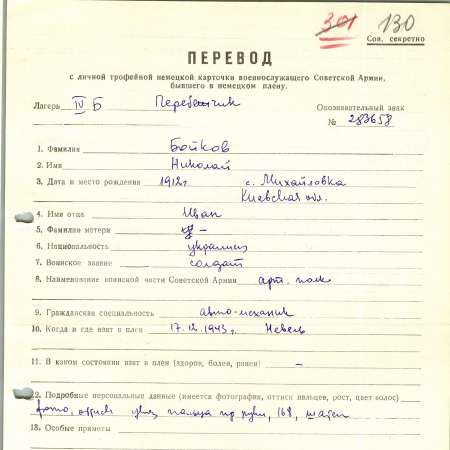 301 130
Сов. секретно
ПЕРЕВОД
с личной трофейной немецкой карточки военнослужащего Советской Армии,
бывшего в немецком плену.
Лагерь IV Б Опознавательный знак
№ 283658
1. Фамилия Бойков
2. Имя Николай
3. Дата и место рождения 1912 г. с. Михайловка
Киевская обл.
4. Имя отца Иван
5. Фамилия матери —
6. Национальность украинец
7. Воинское звание солдат
8. Наименование воинской части Советской Армии арт. полк
9. Гражданская специальность авто-механик
10. Когда и где взят в плен 17.12.1943 г. Невель
11. В каком состоянии взят в плен (здоров, болен, ранен) —
12. Подробные персональные данные (имеется фотография, оттиск пальцев, рост, цвет волос)
фото, оттиск пальца пр руки, 168, шатен
13. Особые приметы